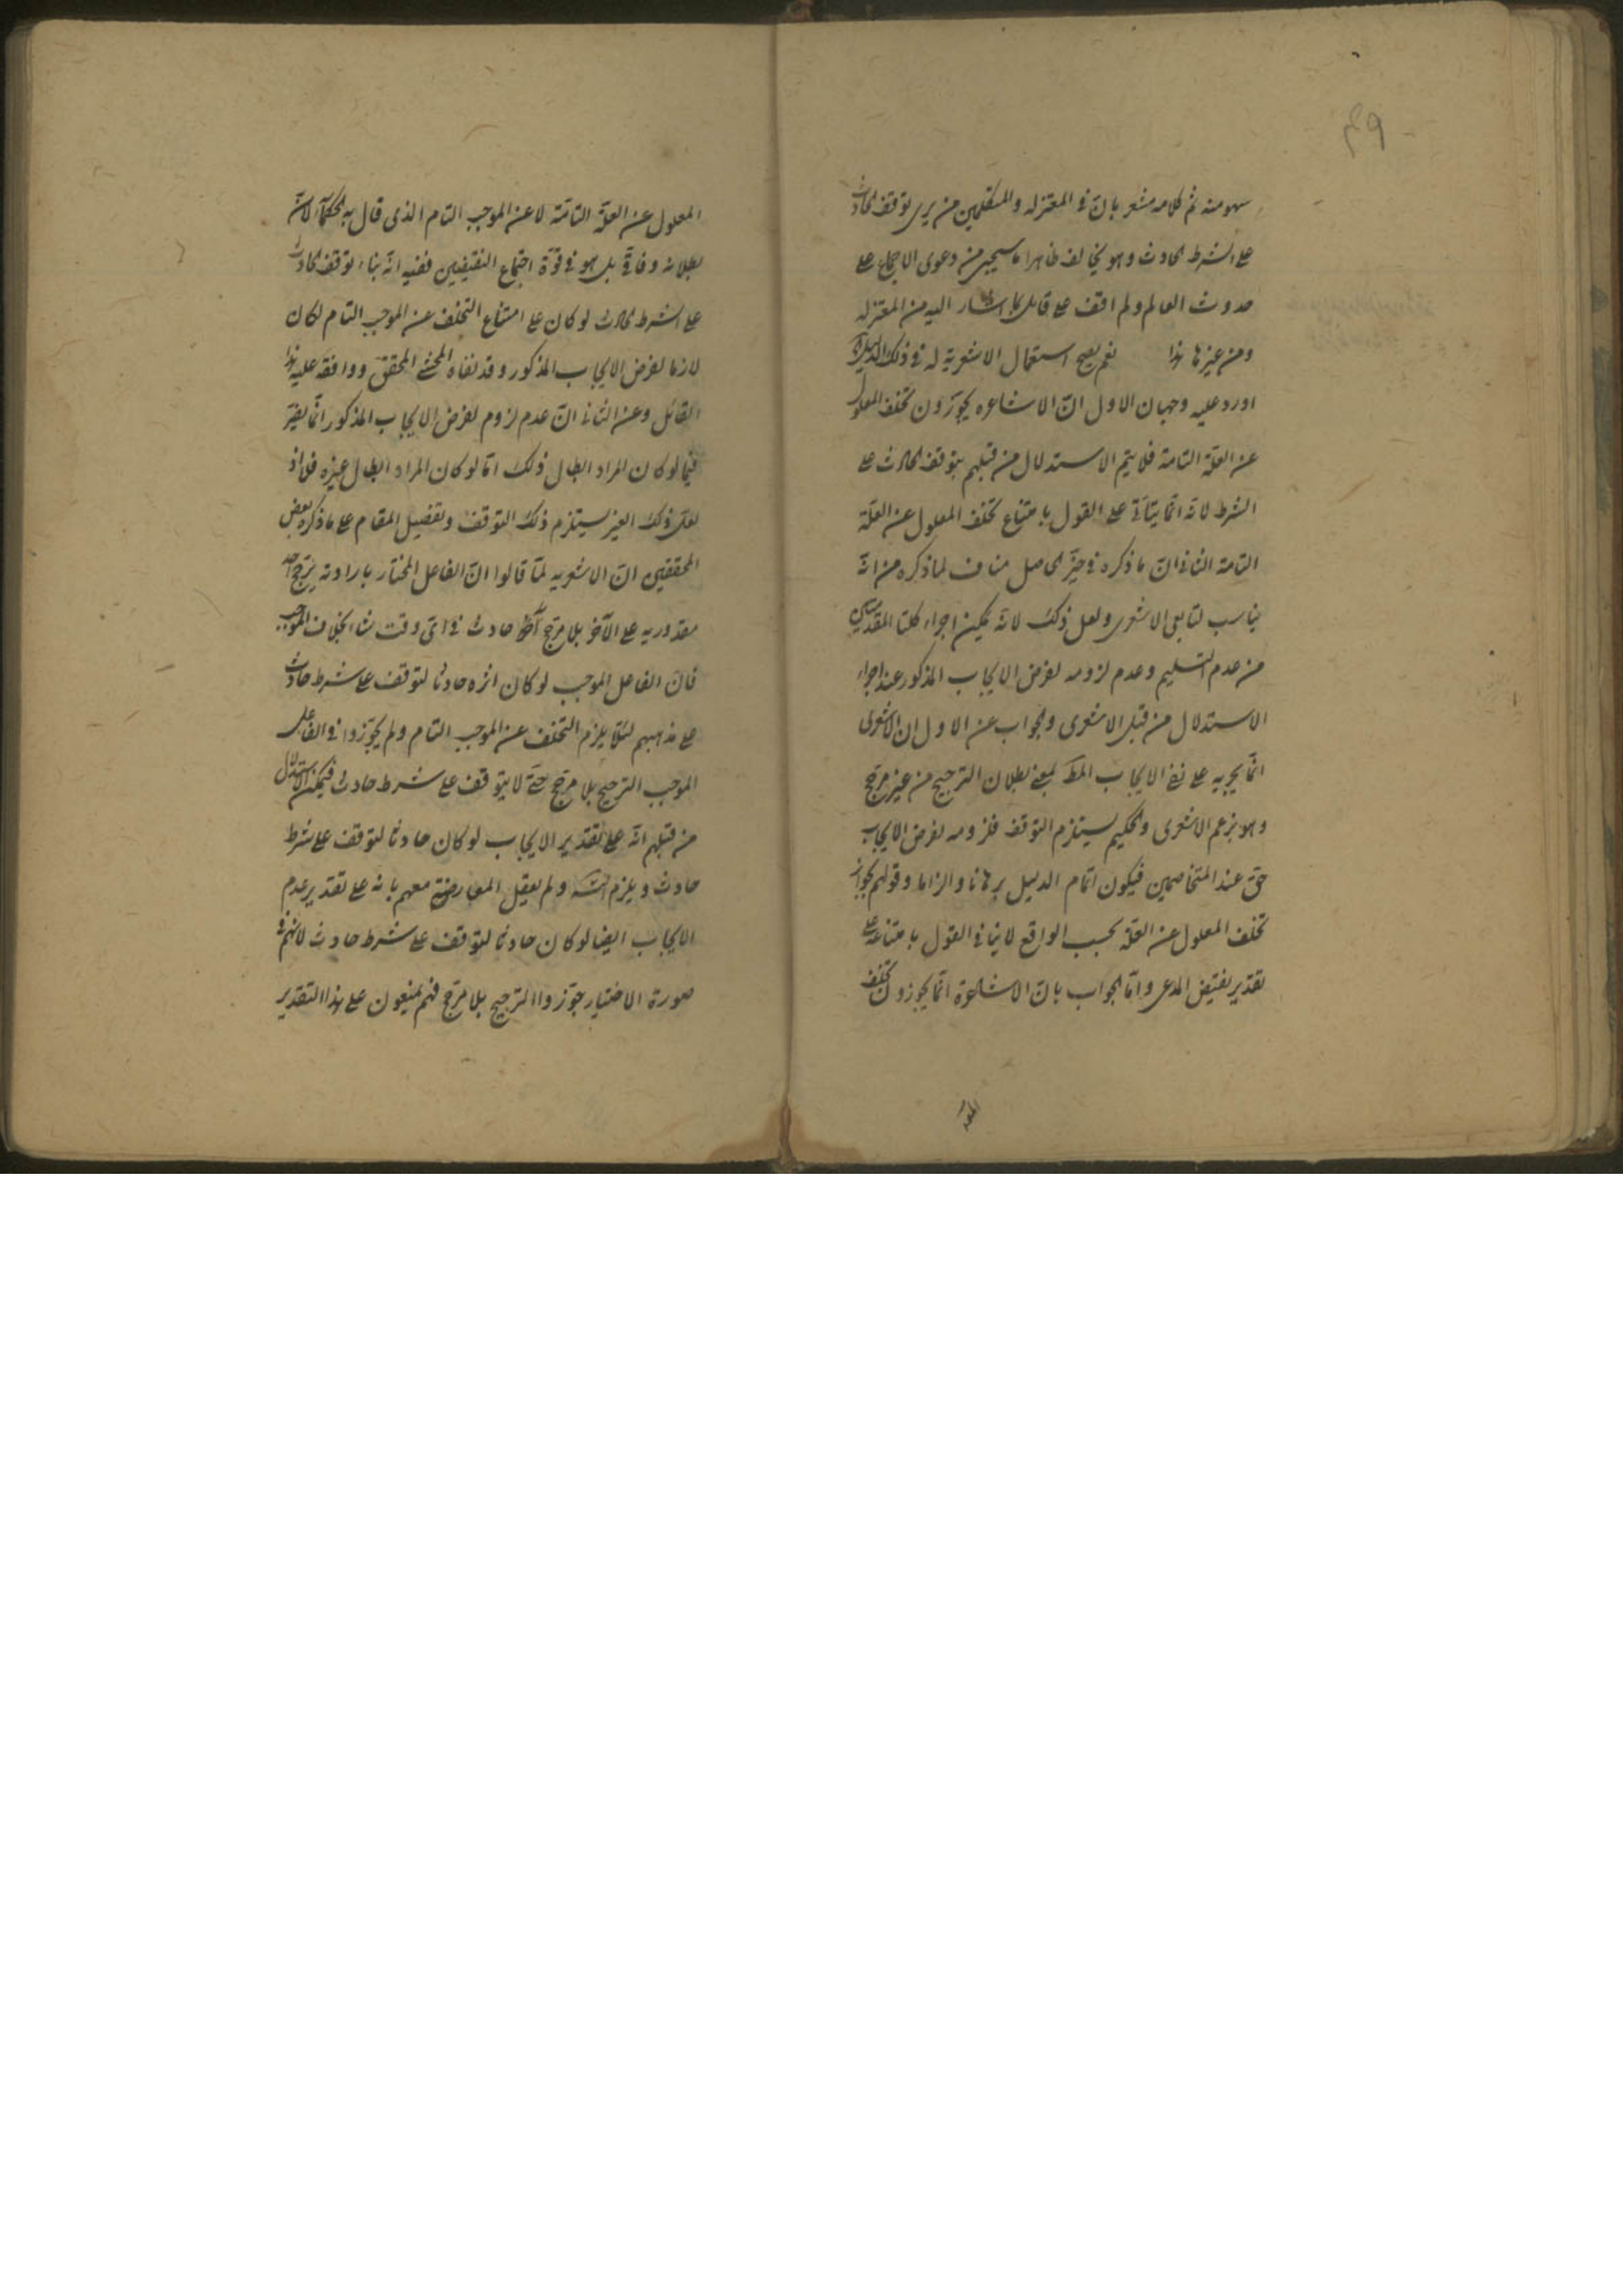 ٤٩
سهو منه ثم كلامه مشعر بانّ فى المعتزله والمتكلمين من يرى توقف الحادث
على الشرط الحادث وهو يخالف ظاهرا ما سيجئ من دعوى الاجماع على
حدوث العالم ولم اقف على قائل بما اشار اليه من المعتزله
ومن غيرها هذا نعم يصح استعمال الاشعرية له فى ذلك الدليل
اورد عليه وجهان الاول انّ الاشاعره يجوّزون تخلف المعلول
عن العلّة التامة فلا يتم الاستدلال من قبلهم بتوقف الحادث على
الشرط لانه انما يتأتى على القول بامتناع تخلف المعلول عن العلّة
التامة الثانى انّ ما ذكره فى حيّز الحاصل مناف لما ذكره من انّه
يناسب لتابعى الاشعرى ولعل ذلك لانّه يمكن اجراء كلتا المقدمتين
من عدم التسليم وعدم لزومه لفرض الايجاب المذكور عند اجراء
الاستدلال من قبل الاشعرى والجواب عن الاول ان الاشعرى
انّما يجريه على نفى الايجاب المط بمعنى بطلان الترجيح من غير مرجّح
وهو بزعم الاشعرى والحكيم يستلزم التوقف فلزومه لفرض الايجاب
حق عند المتخاصمين فيكون اتمام الدليل برهانا والزاما وقولهم بجواز
تخلف المعلول عن العلّة بحسب الواقع لا ينافى القول بامتناعه على
تقدير نقيض المدعى وامّا الجواب بانّ الاشاعرة انّما يجوزون تخلف
المعلول عن العلّة التامّة لا عن الموجب التام الذى قال به الحكمآء لانّ
بطلانه وفاقى بل هو فى قوّة اجتماع النقيضين ففيه انّه بناء توقف الحادث
على الشرط الحادث لو كان على امتناع التخلف عن الموجب التام لكان
لازما لفرض الايجاب المذكور وقد نفاه المحشى المحقق ووافقه عليه هذا
القائل وعن الثانى انّ عدم لزوم لفرض الايجاب المذكور انّما يضرّ
فيما لو كان المراد ابطال ذلك امّا لو كان المراد ابطال غيره فلا اذ
لعلّ ذلك الغير يستلزم ذلك التوقف وتفصيل المقام على ما ذكره بعض
المحققين انّ الاشعريه لمّا قالوا انّ الفاعل المختار بارادته يرجّح احد
مقدوريه على الآخر بلا مرجّح حادث فى اىّ وقت شاء بخلاف الموجب
فانّ الفاعل الموجب لو كان اثره حادثا لتوقف على شرط حادث
على مذهبهم لئلّا يلزم التخلف عن الموجب التام ولم يجوّزوا فى الفاعل
الموجب الترجيح بلا مرجّح حتّى لا يتوقف على شرط حادث فيمكن الاستدلال
من قبلهم انّه على تقدير الايجاب لو كان حادثا لتوقف على شرط
حادث ويلزم التسـ ولم يعقل المعارضة معهم بانه على تقدير عدم
الايجاب ايضا لو كان حادثا لتوقف على شرط حادث لانهم فى
صورة الاختيار جوّزوا الترجيح بلا مرجّح فهم يمنعون على هذا التقدير